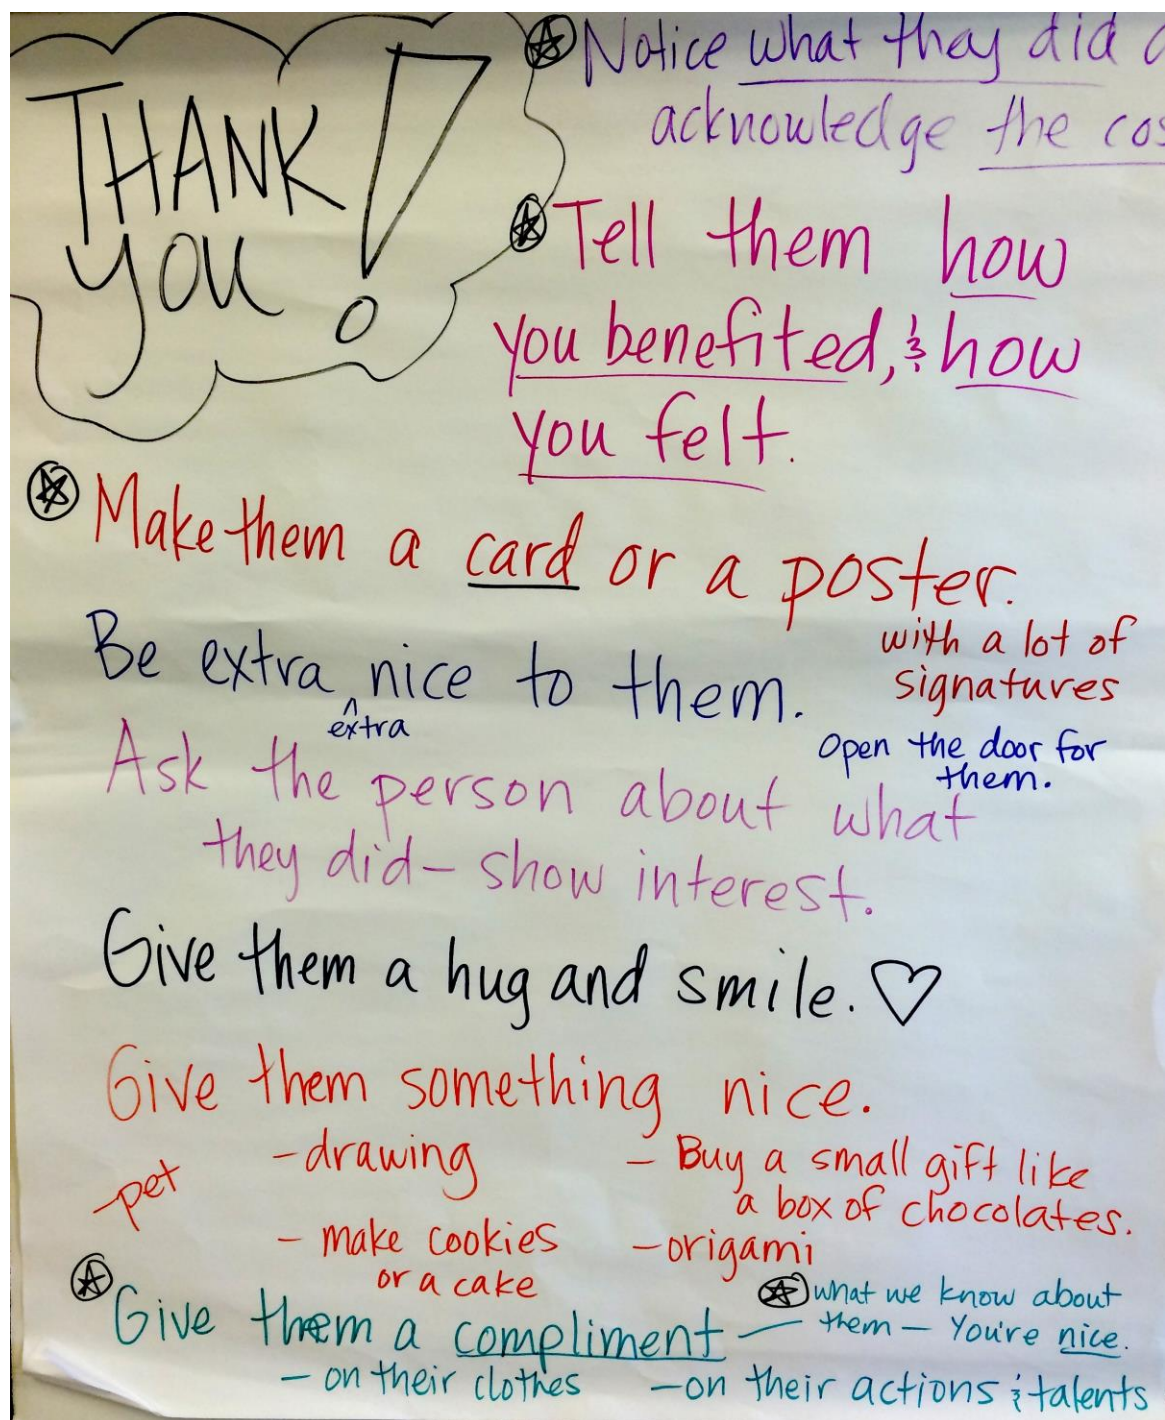 THANK
you!
Notice what they did
acknowledge the
Tell them how
you benefited, & how
you felt.
Make them a card or a poster.
with a lot of
signatures
Be extra nice to them.
extra
Open the door for
them.
Ask the person about what
they did – show interest.
Give them a hug and smile. ♡
Give them something nice.
- drawing
- Buy a small gift like
a box of chocolates.
- pet
- make cookies
or a cake
- origami
Give them a compliment —
what we know about
them – You're nice.
- on their clothes
- on their actions & talents